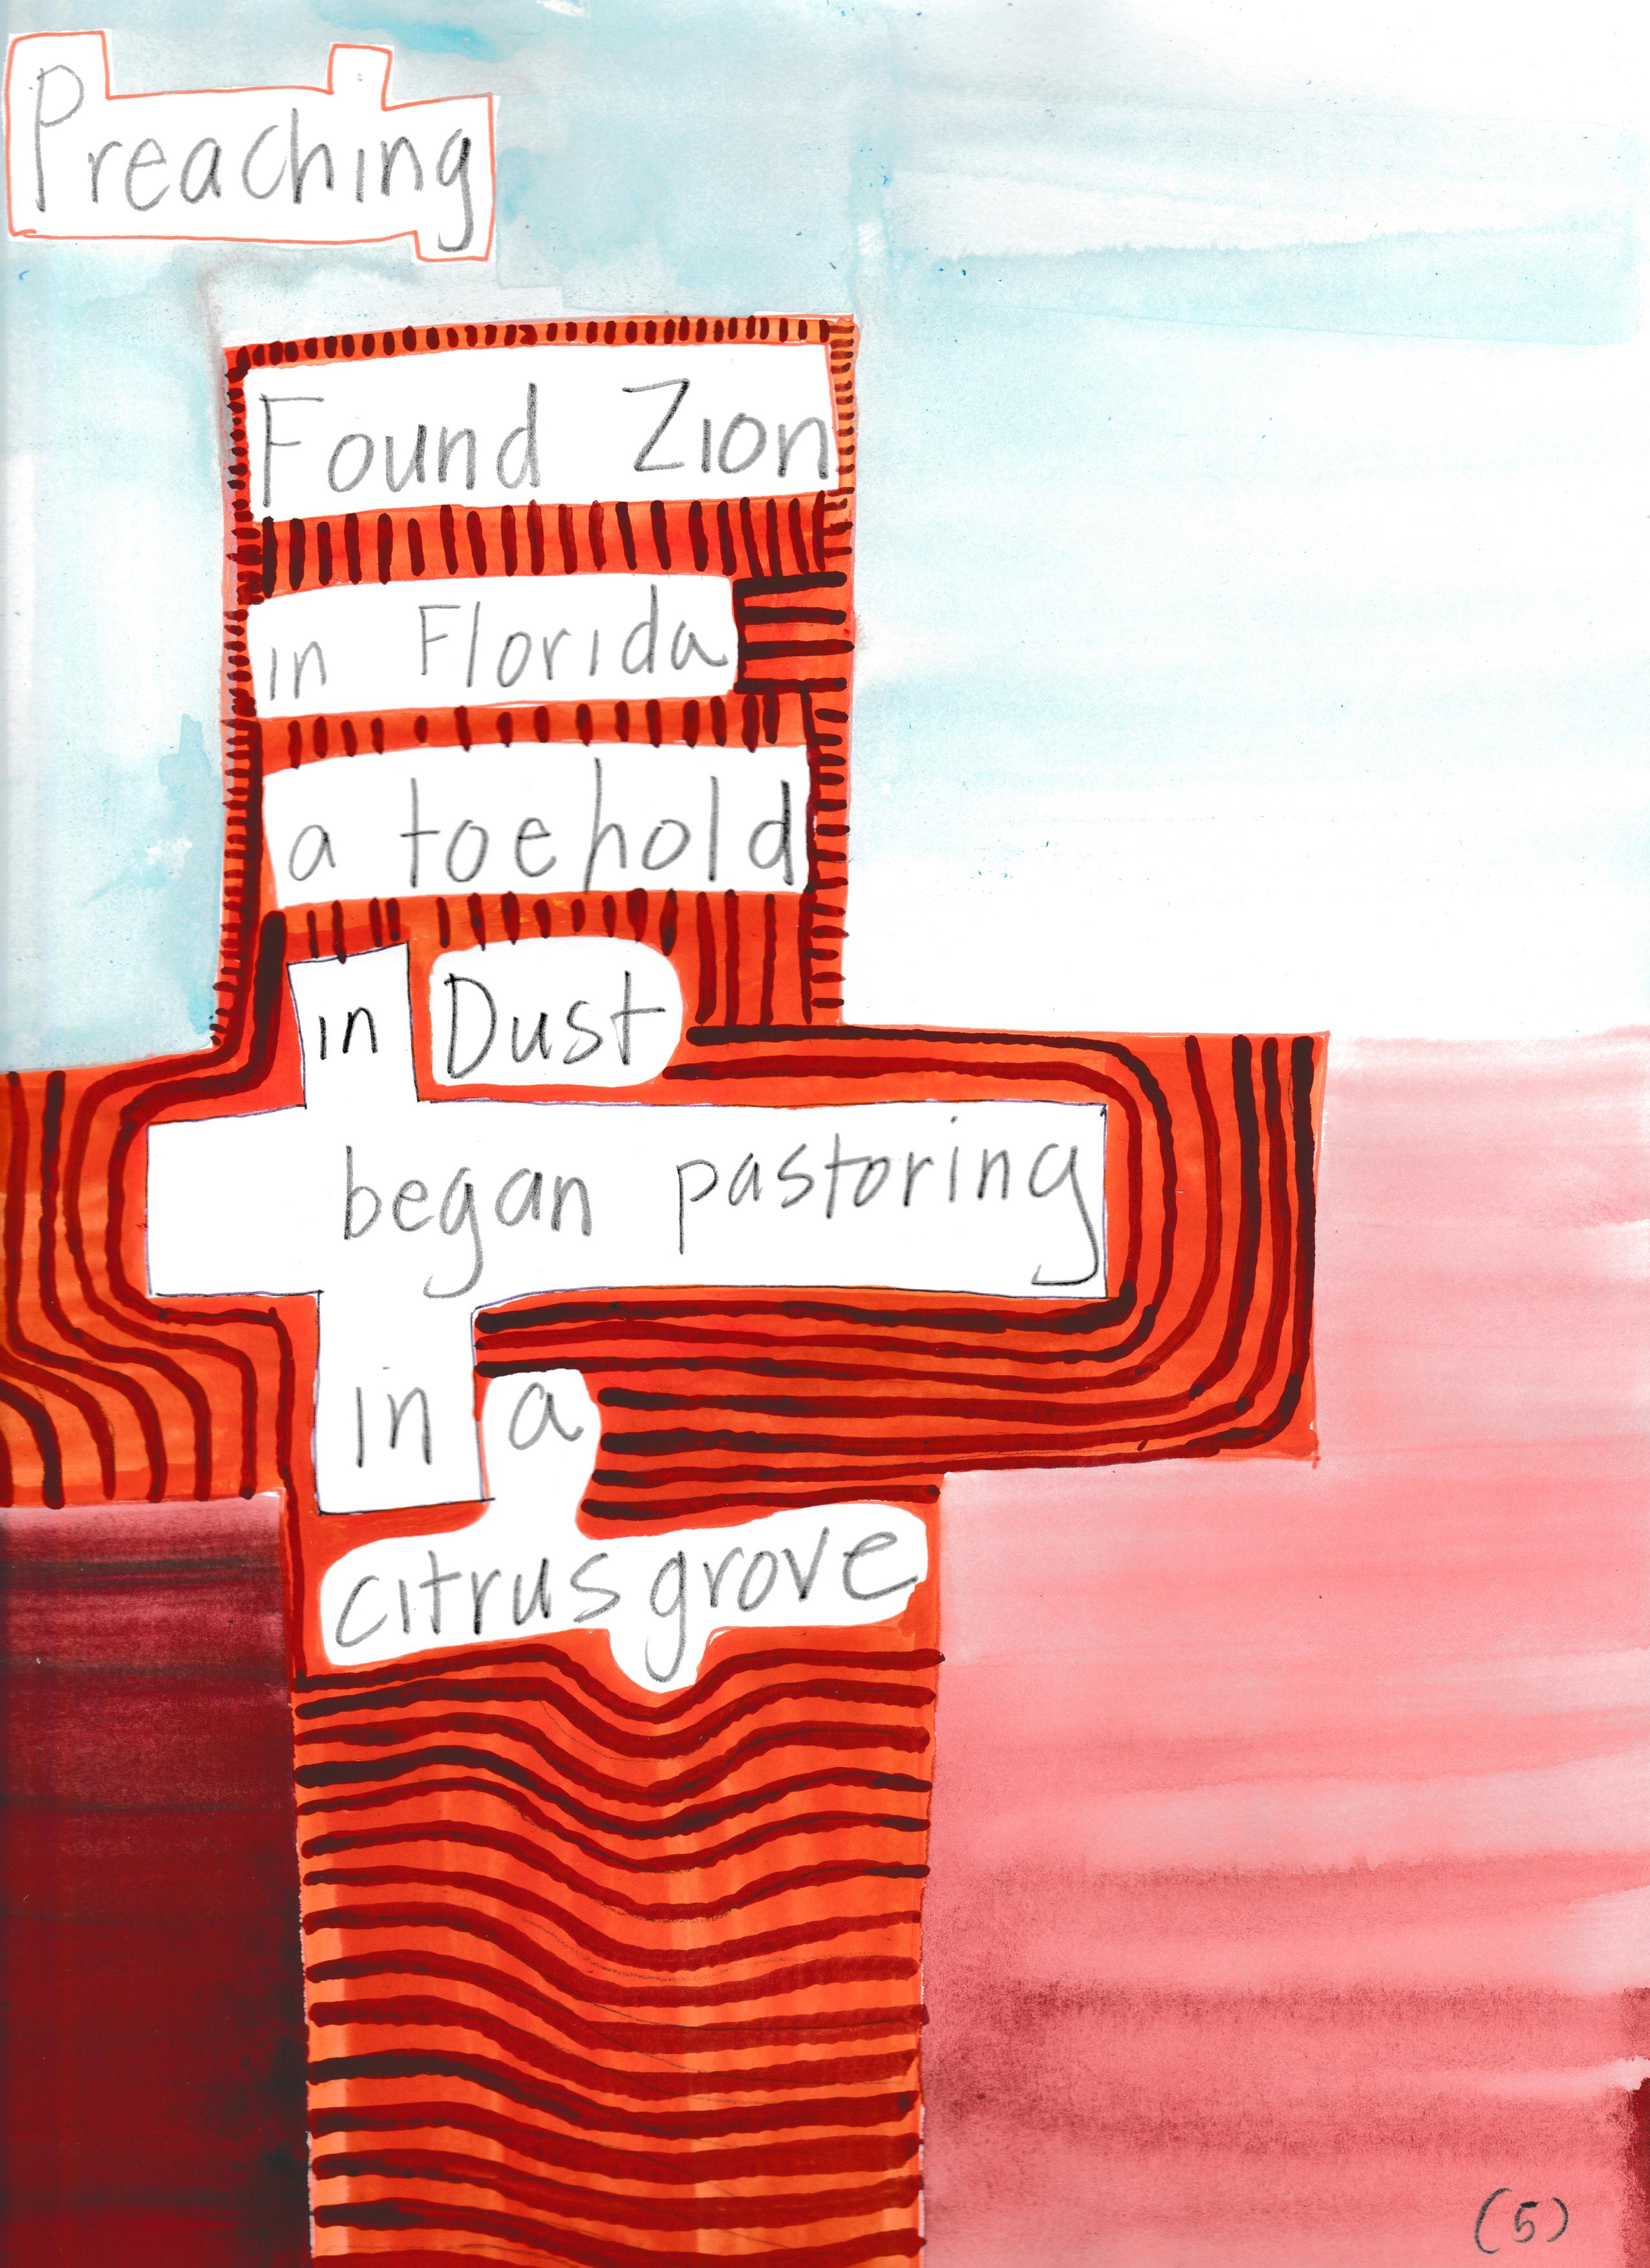 Preaching
Found Zion
in Florida
a toehold
in Dust
began pastoring
in a
citrus grove
(5)